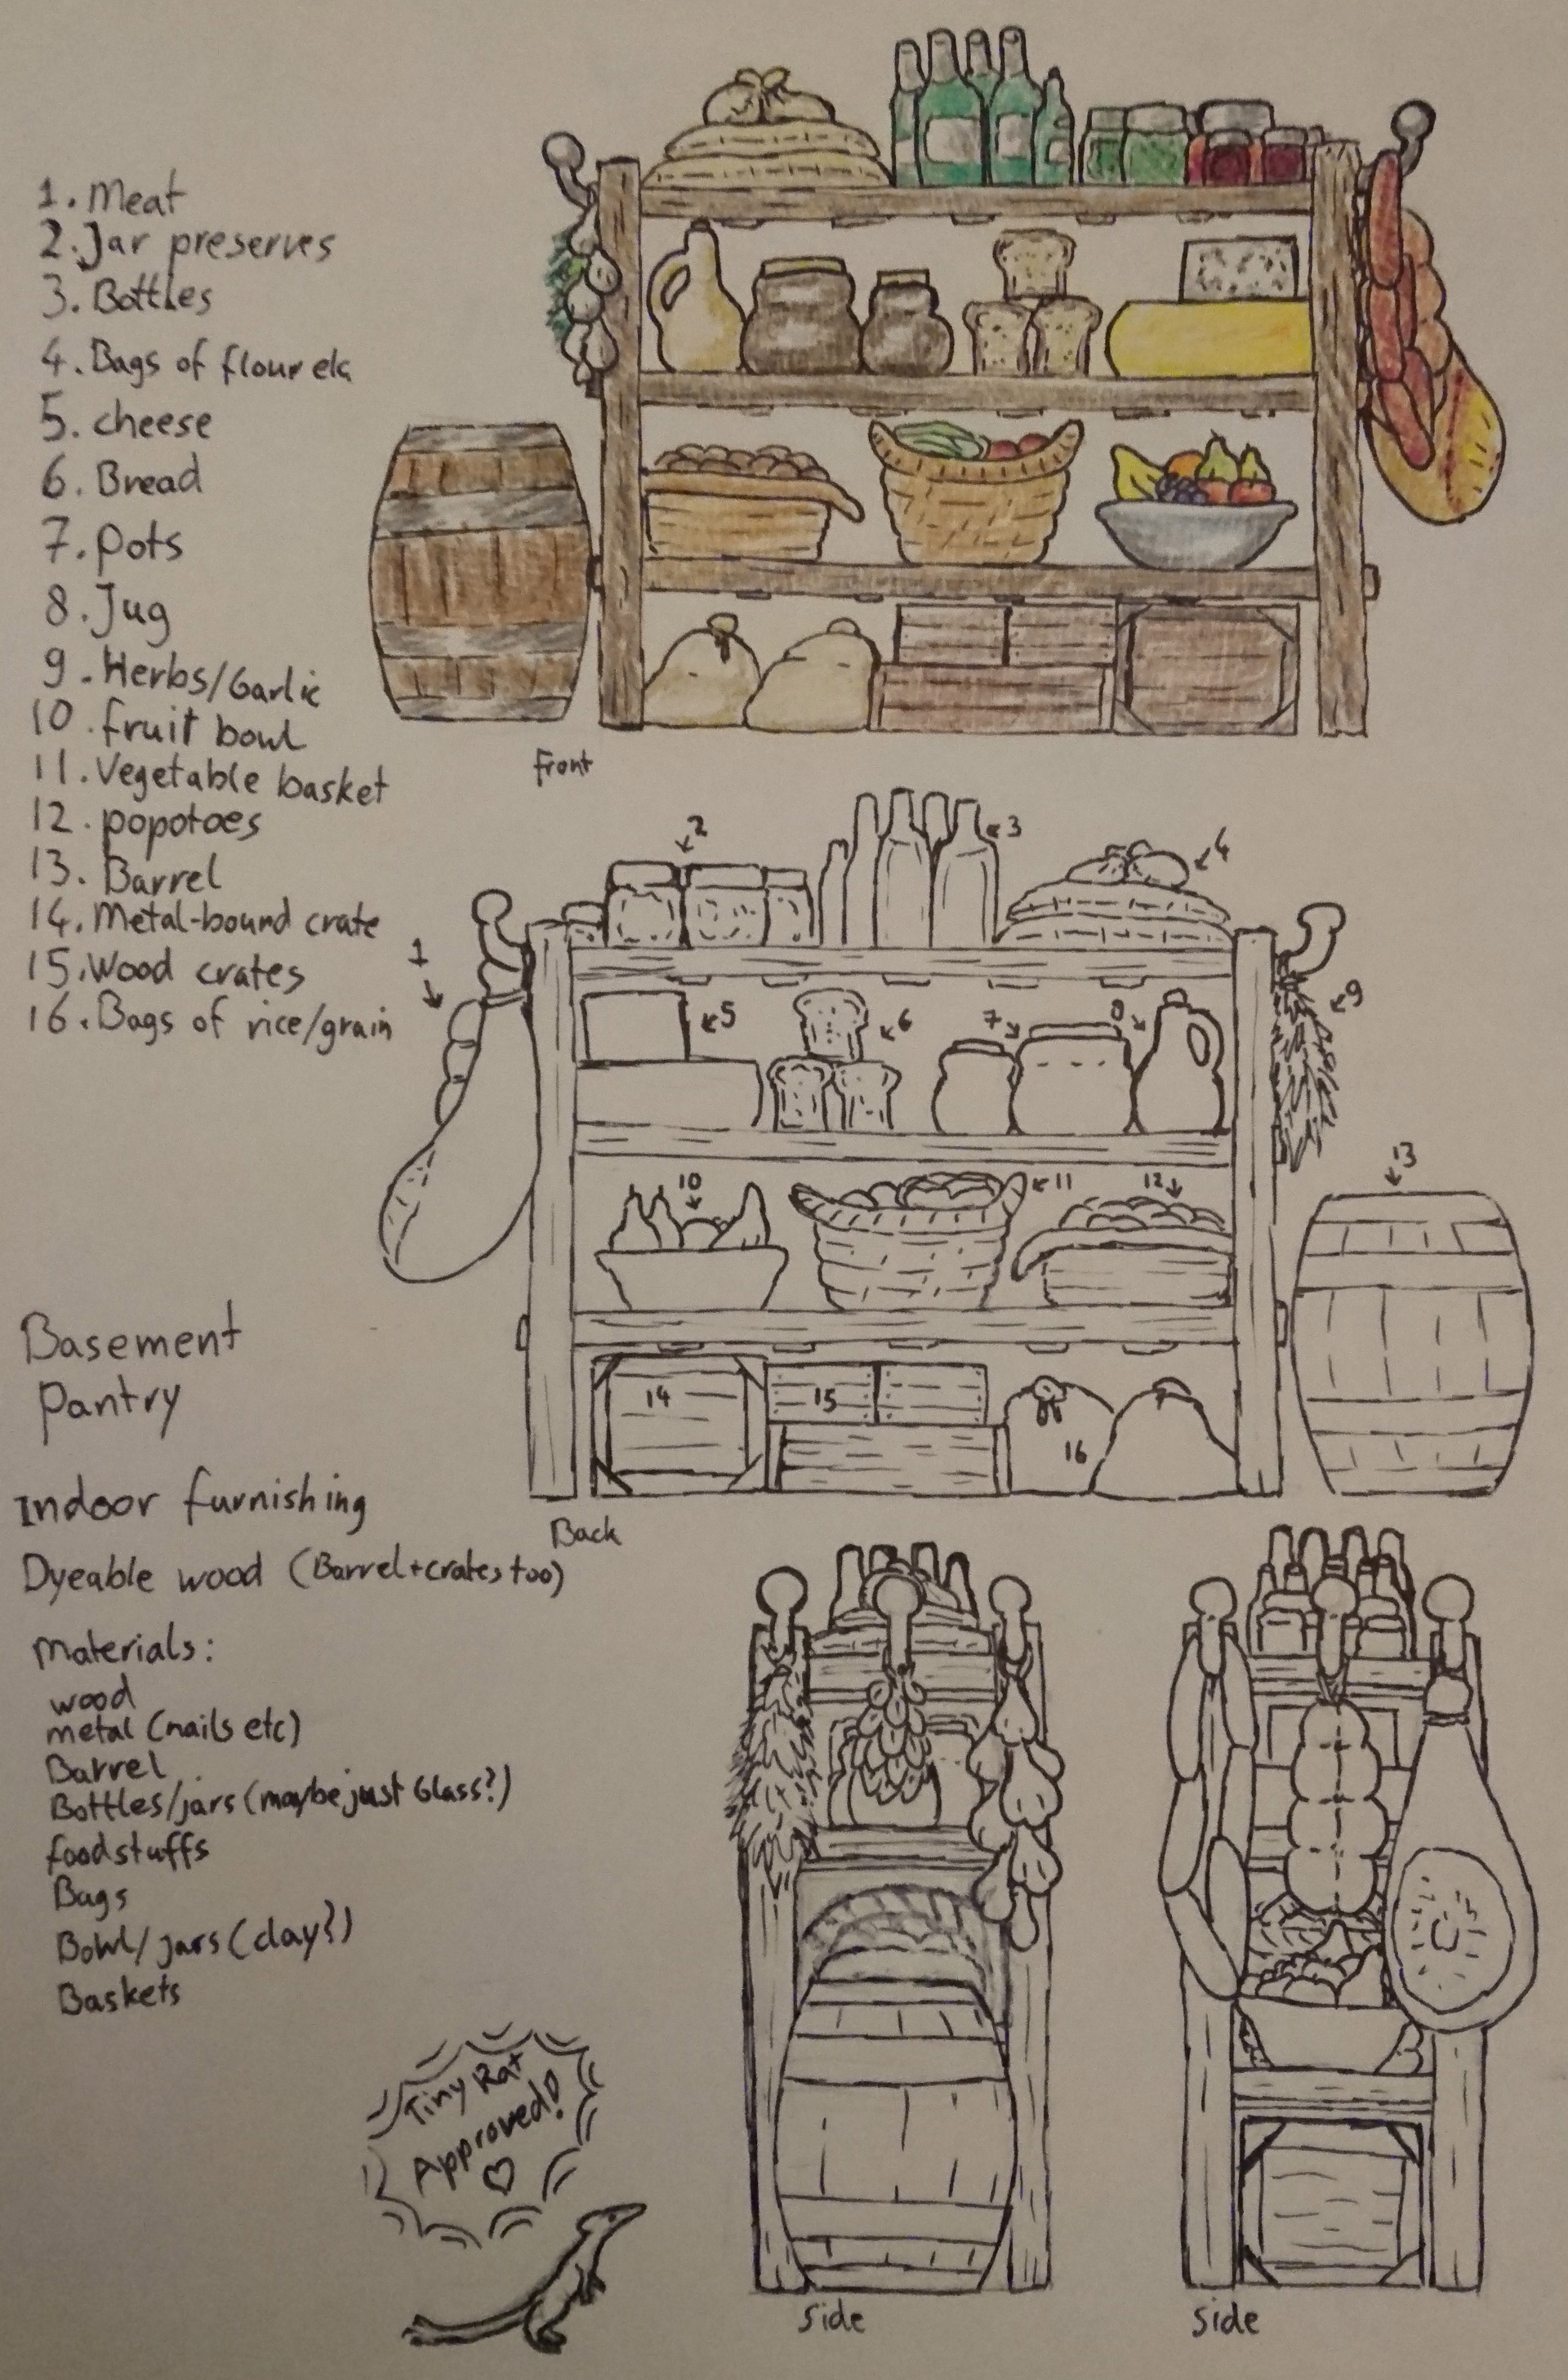 1. Meat
2. Jar preserves
3. Bottles
4. Bags of flour etc
5. cheese
6. Bread
7. pots
8. Jug
9. Herbs/Garlic
10. fruit bowl
11. Vegetable basket
12. popotoes
13. Barrel
14. Metal-bound crate
15. Wood crates
16. Bags of rice/grain
Front
1
2
3
4
5
6
7
8
9
10
11
12
13
14
15
16
Back
Basement
Pantry
Indoor furnishing
Dyeable wood (Barrel+crates too)
Materials:
wood
metal (nails etc)
Barrel
Bottles/jars (maybe just Glass?)
foodstuffs
Bags
Bowl/jars (clay?)
Baskets
Tiny Rat
Approved!
Side
Side